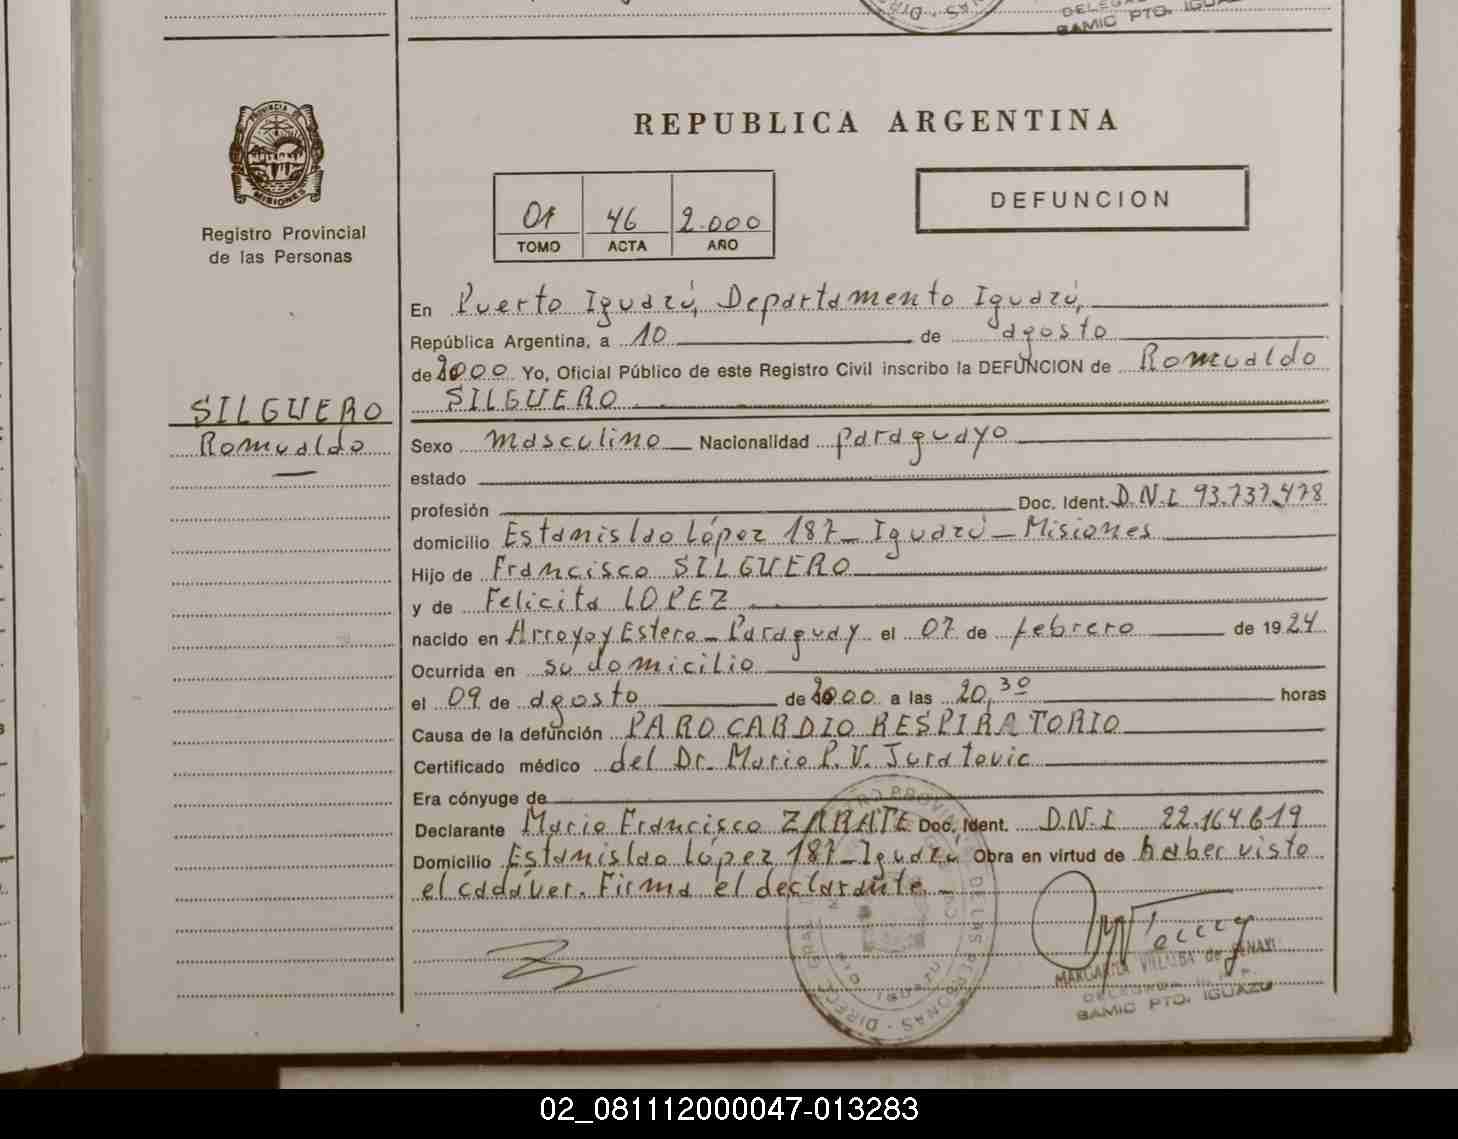 SAMIC PTO. IGUAZU
PROVINCIA DE
MISIONES
Registro Provincial
de las Personas
REPUBLICA ARGENTINA
01 46 2.000
TOMO ACTA AÑO
DEFUNCION
En Puerto Iguazú, Departamento Iguazú,
República Argentina, a 10 de agosto
de 2000 Yo, Oficial Público de este Registro Civil inscribo la DEFUNCION de Romualdo
SILGUERO
SILGUERO
Romualdo
Sexo masculino Nacionalidad paraguayo
estado
profesión Doc. Ident. D.N.I 93.737.478
domicilio Estanislao López 187 - Iguazú - Misiones
Hijo de Francisco SILGUERO
y de Felicita LOPEZ
nacido en Arroyo y Estero - Paraguay el 07 de febrero de 1924
Ocurrida en su domicilio
el 09 de agosto de 2000 a las 20,30 horas
Causa de la defunción PARO CARDIO RESPIRATORIO
Certificado médico del Dr. Mario P. V. Juratovic
Era cónyuge de
Declarante Mario Francisco ZARATE Doc. Ident. D.N.I 22.164.619
Domicilio Estanislao López 187 - Iguazú Obra en virtud de haber visto
el cadáver. Firma el declarante. -
MARGARITA VILLALBA de
DELEGADA
SAMIC PTO. IGUAZU
02_081112000047-013283